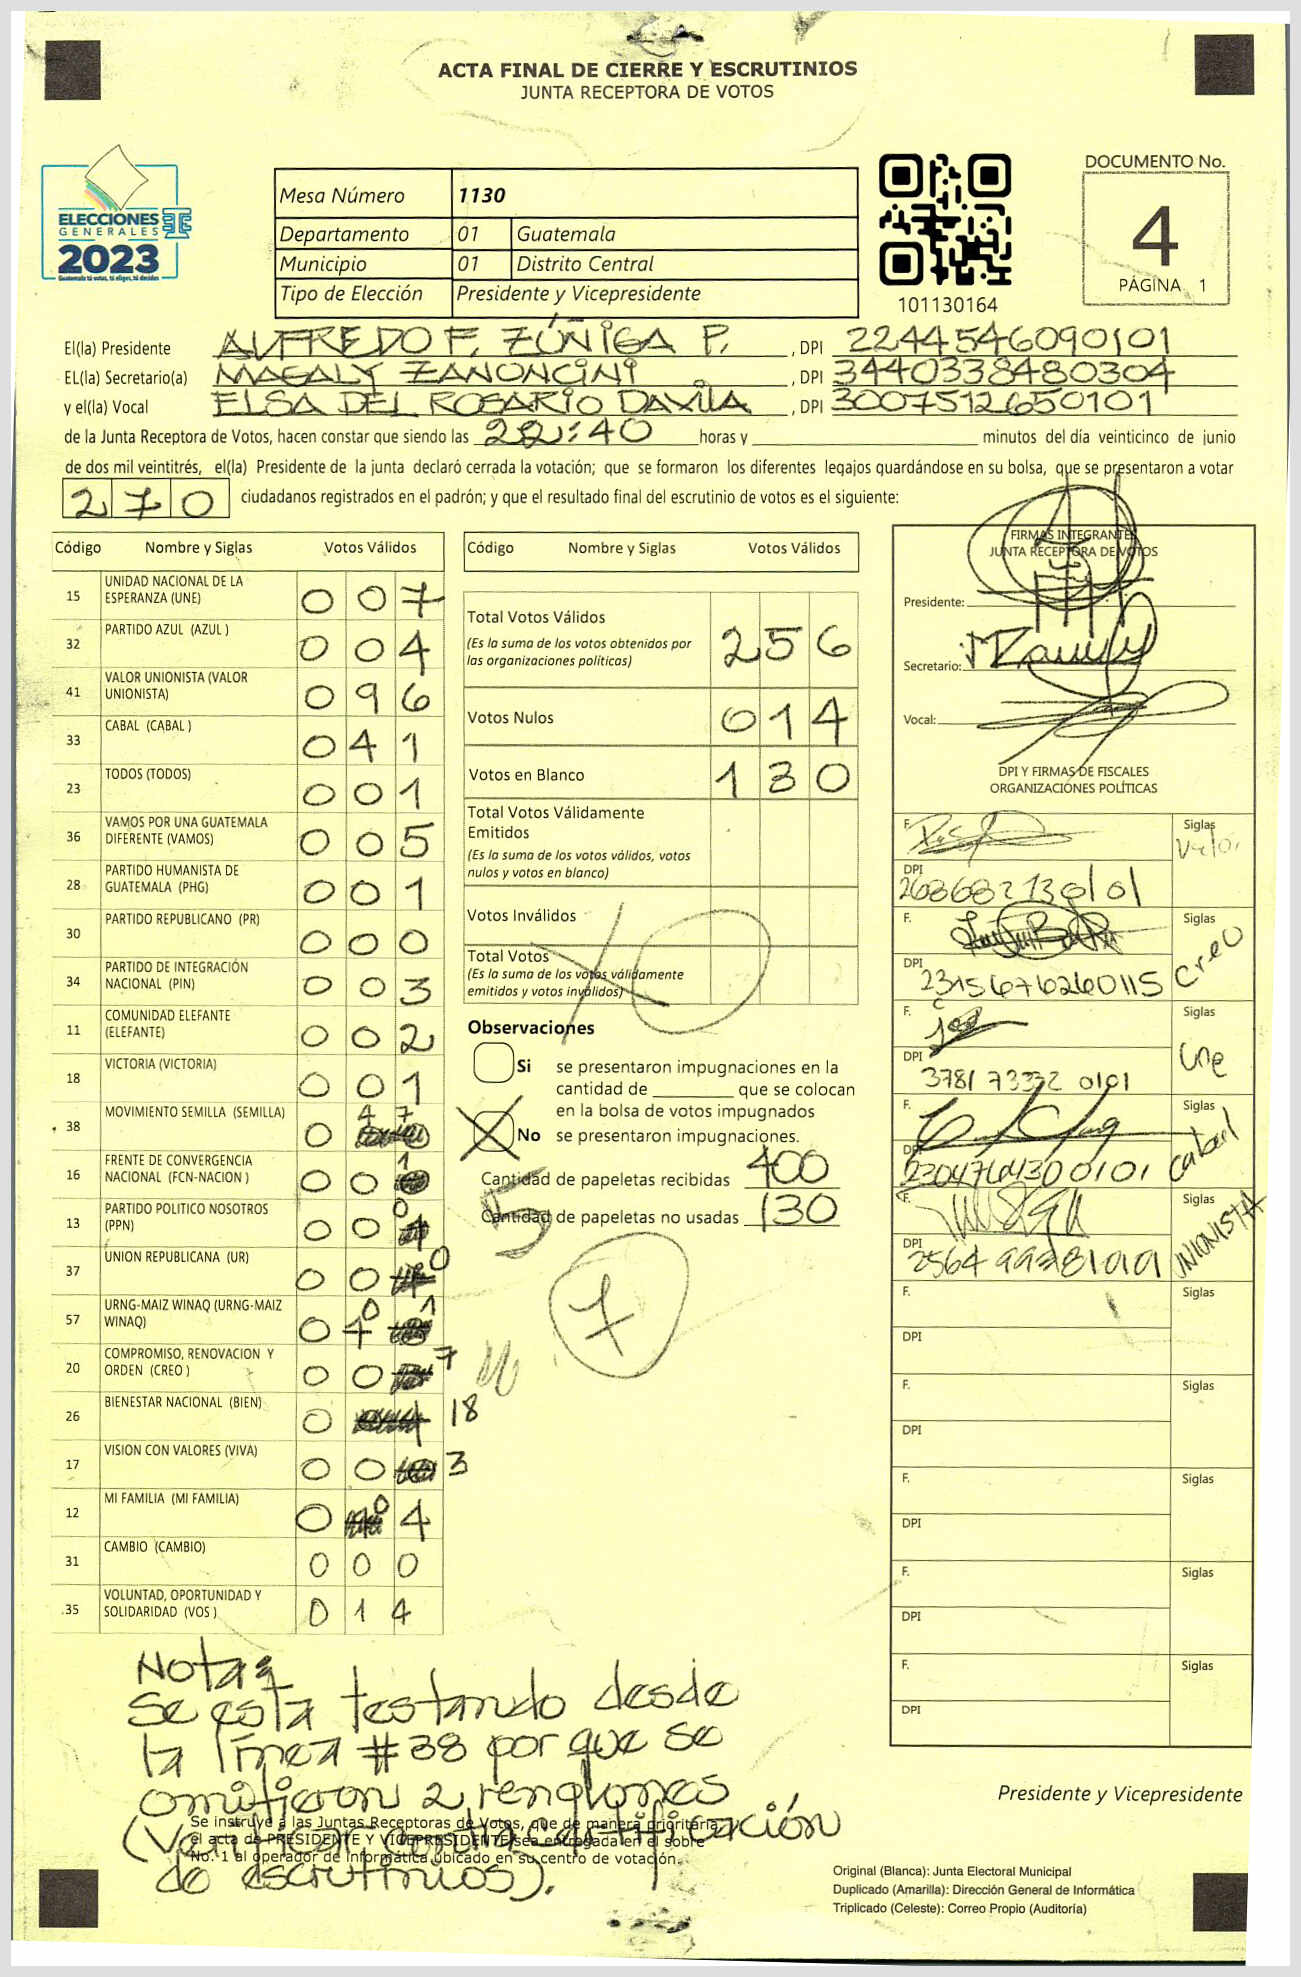 ACTA FINAL DE CIERRE Y ESCRUTINIOS
JUNTA RECEPTORA DE VOTOS
ELECCIONES
GENERALES
2023
Guatemala tú votas, tú eliges, tú decides
Mesa Número 1130
Departamento 01 Guatemala
Municipio 01 Distrito Central
Tipo de Elección Presidente y Vicepresidente
101130164
DOCUMENTO No.
4
PÁGINA 1
El(la) Presidente ALFREDO F. ZÚÑIGA P. , DPI 2244546090101
EL(la) Secretario(a) MAGALY ZANONCINI , DPI 3440338480304
y el(la) Vocal ELSA DEL ROSARIO DAVILA , DPI 3007512650101
de la Junta Receptora de Votos, hacen constar que siendo las 22:40 horas y minutos del día veinticinco de junio
de dos mil veintitrés, el(la) Presidente de la junta declaró cerrada la votación; que se formaron los diferentes legajos guardándose en su bolsa, que se presentaron a votar
270 ciudadanos registrados en el padrón; y que el resultado final del escrutinio de votos es el siguiente:
Código Nombre y Siglas Votos Válidos
15 UNIDAD NACIONAL DE LA
ESPERANZA (UNE) 0 0 7
32 PARTIDO AZUL (AZUL ) 0 0 4
41 VALOR UNIONISTA (VALOR
UNIONISTA) 0 9 6
33 CABAL (CABAL ) 0 4 1
23 TODOS (TODOS) 0 0 1
36 VAMOS POR UNA GUATEMALA
DIFERENTE (VAMOS) 0 0 5
28 PARTIDO HUMANISTA DE
GUATEMALA (PHG) 0 0 1
30 PARTIDO REPUBLICANO (PR) 0 0 0
34 PARTIDO DE INTEGRACIÓN
NACIONAL (PIN) 0 0 3
11 COMUNIDAD ELEFANTE
(ELEFANTE) 0 0 2
18 VICTORIA (VICTORIA) 0 0 1
38 MOVIMIENTO SEMILLA (SEMILLA) 0 4 7
16 FRENTE DE CONVERGENCIA
NACIONAL (FCN-NACION ) 0 0 1
13 PARTIDO POLITICO NOSOTROS
(PPN) 0 0 0
37 UNION REPUBLICANA (UR) 0 0 0
57 URNG-MAIZ WINAQ (URNG-MAIZ
WINAQ) 0 0 1
20 COMPROMISO, RENOVACION Y
ORDEN (CREO ) 0 0 7
26 BIENESTAR NACIONAL (BIEN) 0 18
17 VISION CON VALORES (VIVA) 0 0 3
12 MI FAMILIA (MI FAMILIA) 0 0 4
31 CAMBIO (CAMBIO) 0 0 0
35 VOLUNTAD, OPORTUNIDAD Y
SOLIDARIDAD (VOS ) 0 1 4
Código Nombre y Siglas Votos Válidos
Total Votos Válidos
(Es la suma de los votos obtenidos por
las organizaciones políticas) 2 5 6
Votos Nulos 0 1 4
Votos en Blanco 1 3 0
Total Votos Válidamente
Emitidos
(Es la suma de los votos válidos, votos
nulos y votos en blanco)
Votos Inválidos
Total Votos
(Es la suma de los votos válidamente
emitidos y votos inválidos)
Observaciones
Si se presentaron impugnaciones en la
cantidad de que se colocan
en la bolsa de votos impugnados
No se presentaron impugnaciones.
Cantidad de papeletas recibidas 400
Cantidad de papeletas no usadas 130
5
FIRMAS INTEGRANTES
JUNTA RECEPTORA DE VOTOS
Presidente:
Secretario:
Vocal:
DPI Y FIRMAS DE FISCALES
ORGANIZACIONES POLÍTICAS
F. Siglas
Valor
DPI
F. Siglas
Creo
DPI
F. Siglas
Une
DPI
3781 73332 0101
F. Siglas
Cabal
DPI
2304764300101
F. Siglas
UNIONISTA
DPI
F. Siglas
DPI
F. Siglas
DPI
F. Siglas
DPI
F. Siglas
DPI
F. Siglas
DPI
Nota:
Se esta testando desde
la línea #38 por que se
omitieron 2 renglones
(Verificar contra certificación
de escrutinios).
Se instruye a las Juntas Receptoras de Votos, que de manera prioritaria
el acta de PRESIDENTE Y VICEPRESIDENTE sea entregada en el sobre
No. 1 al operador de Informática ubicado en su centro de votación.
Presidente y Vicepresidente
Original (Blanca): Junta Electoral Municipal
Duplicado (Amarilla): Dirección General de Informática
Triplicado (Celeste): Correo Propio (Auditoría)